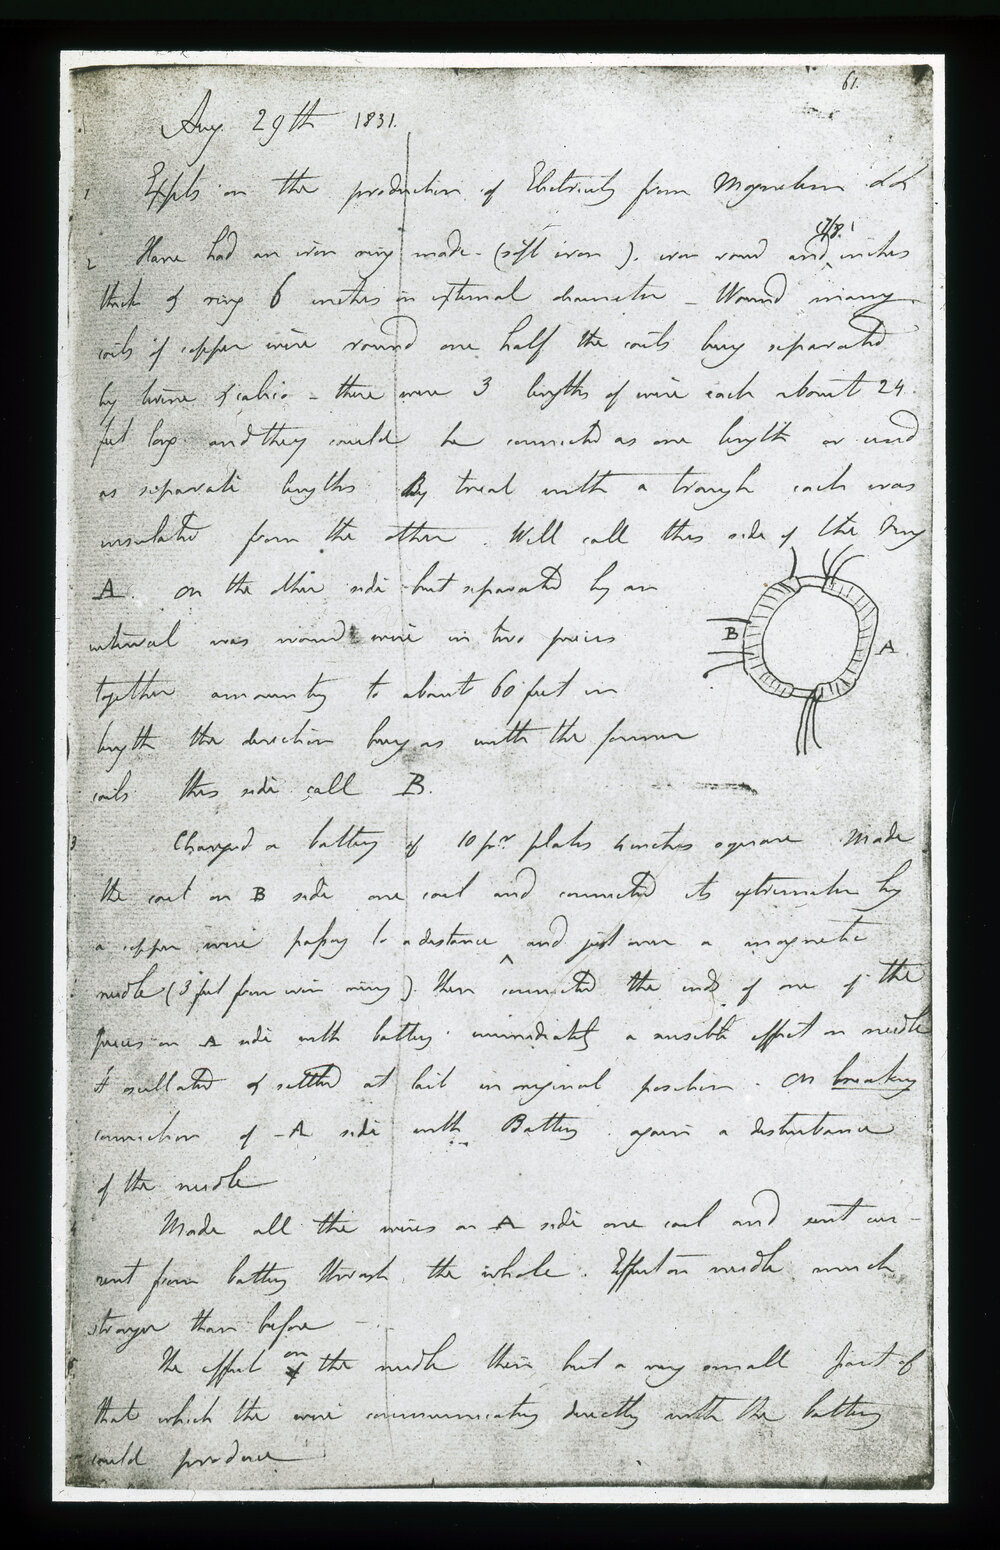 61.
Aug 29th 1831.
1 Expts on the production of Electricity from Magnetism &c &c
2 Have had an iron ring made (soft iron). iron round and 7/8. inches
thick & ring 6 inches in external diameter - Wound many
coils of copper wire round one half the coils being separated
by twine & calico - there were 3 lengths of wire each about 24
feet long and they could be connected as one length or used
as separate lengths. By trial with a trough each was
insulated from the other. Will call this side of the ring
A. on the other side but separated by an
interval was wound wire in two pieces
together amounting to about 60 feet in
length the direction being as with the former
coils this side call B.
B
A
3 Charged a battery of 10 pr. plates 4 inches square Made
the coil on B side one coil and connected its extremities by
a copper wire passing to a distance and just over a magnetic
needle (3 feet from iron ring) then connected the ends of one of the
pieces on A side with battery immediately a sensible effect on needle
It oscillated & settled at last in original position. On breaking
connection of A side with Battery again a disturbance
of the needle
4 Made all the wires on A side one coil and sent cur-
rent from battery through the whole. Effect on needle much
stronger than before
5 The effect on the needle then but a very small part of
that which the wire communicating directly with the battery
could produce